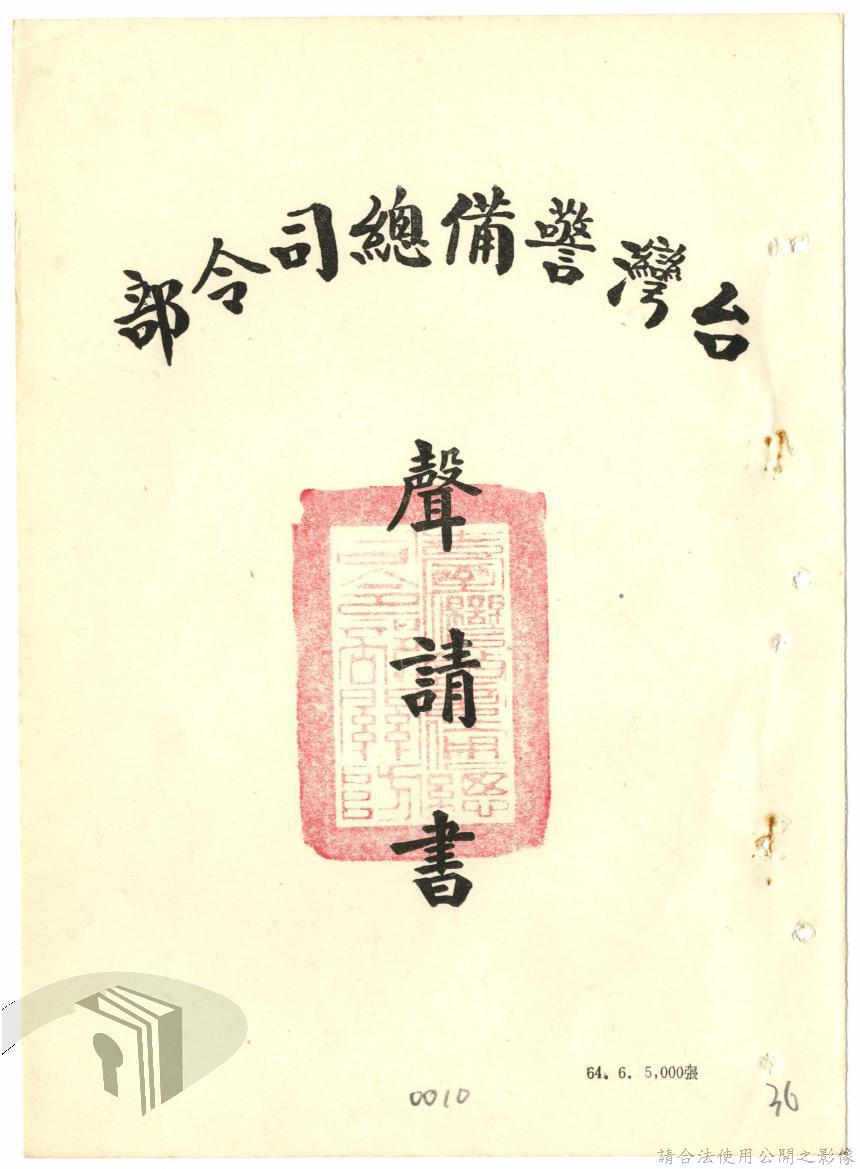 台灣警備總司令部
聲請書
64. 6. 5,000張
0010
36
請合法使用公開之影像